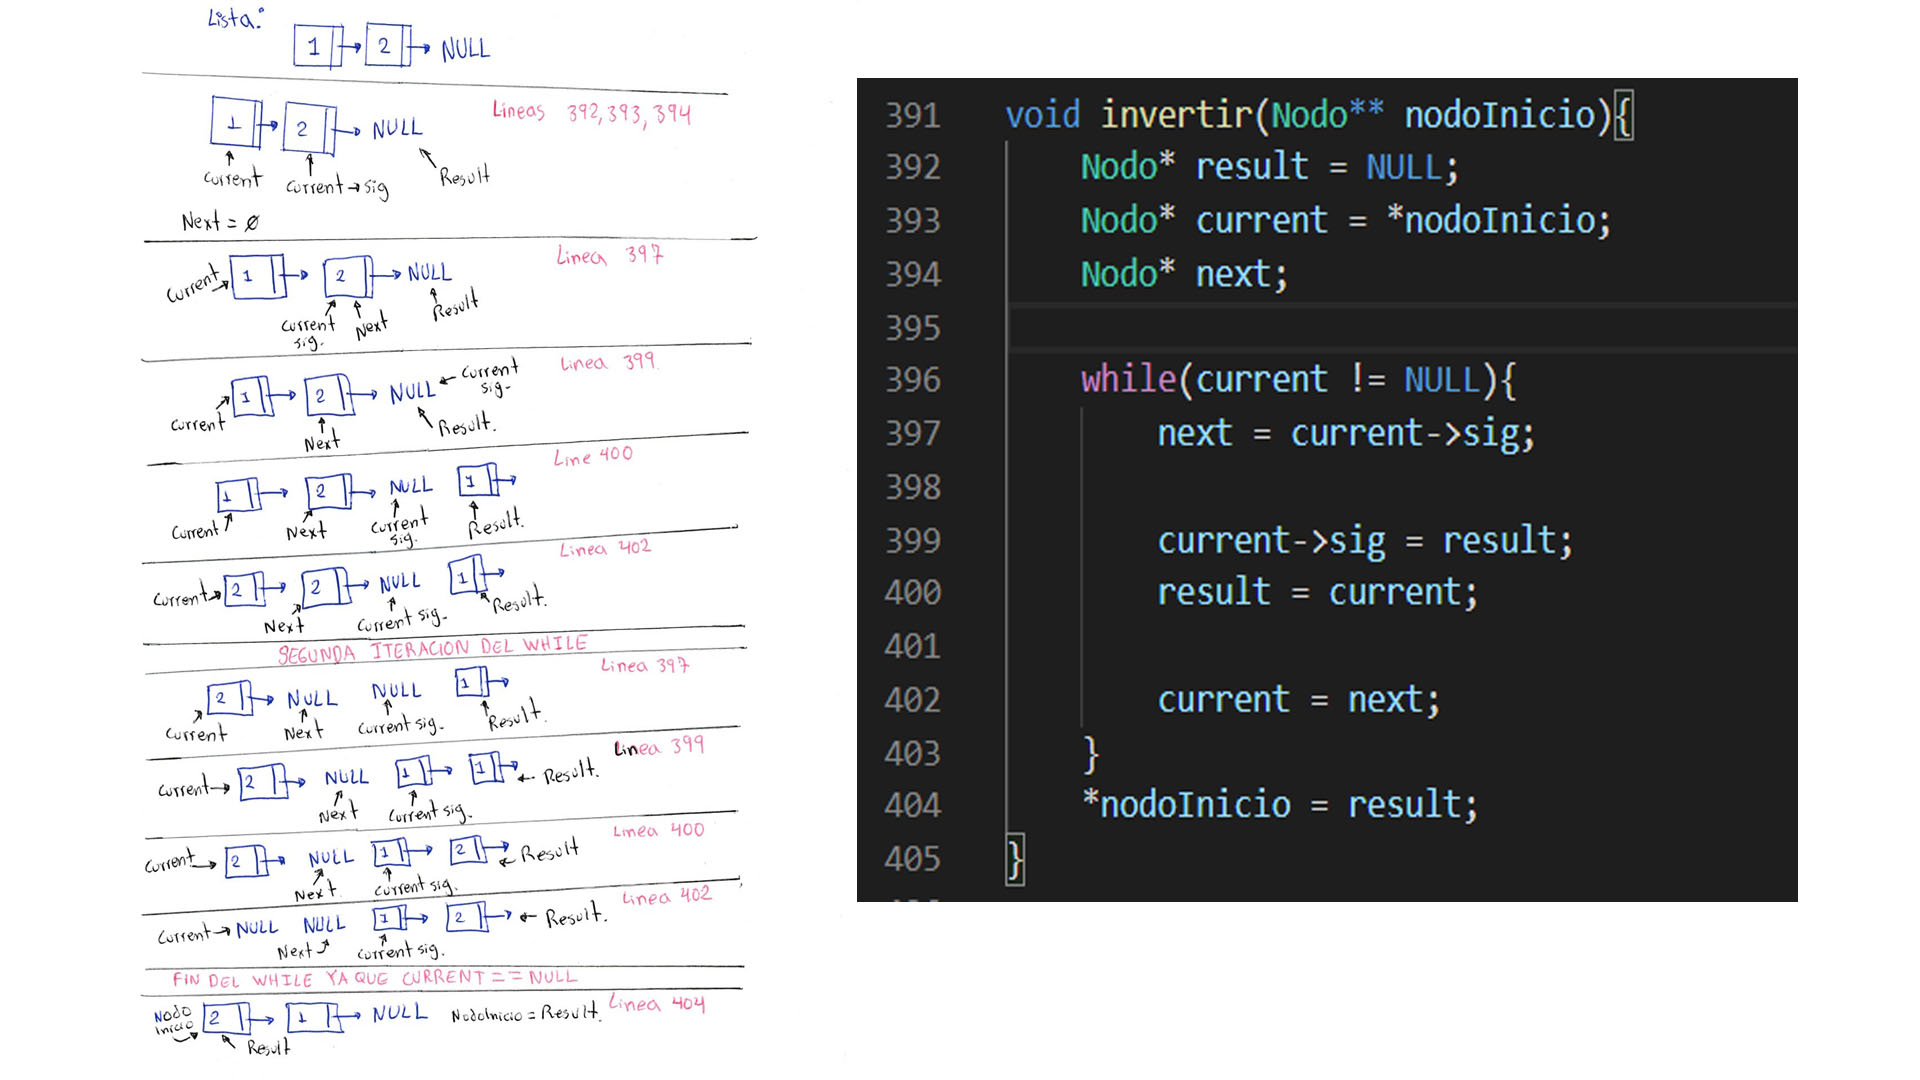 Lista:
1 2 NULL
Lineas 392,393,394
1 2 NULL
Current Current→sig Result
Next = ∅
Linea 397
Current 1 2 NULL
Current sig. Next Result
Linea 399
1 2 NULL Current sig.
Current Next Result.
Line 400
1 2 NULL 1
Current Next Current sig. Result.
Linea 402
Current 2 2 NULL 1
Next Current sig. Result.
SEGUNDA ITERACION DEL WHILE
Linea 397
2 NULL NULL 1
Current Next Current sig. Result.
Linea 399
Current 2 NULL 1 1 Result.
Next Current sig.
Linea 400
Current 2 NULL 1 2 Result
Next Current sig.
Linea 402
Current NULL NULL 1 2 Result.
Next Current sig.
FIN DEL WHILE YA QUE CURRENT == NULL
Linea 404
Nodo Inicio 2 1 NULL NodoInicio = Result.
Result
391 void invertir(Nodo** nodoInicio){
392 Nodo* result = NULL;
393 Nodo* current = *nodoInicio;
394 Nodo* next;
395
396 while(current != NULL){
397 next = current->sig;
398
399 current->sig = result;
400 result = current;
401
402 current = next;
403 }
404 *nodoInicio = result;
405 }